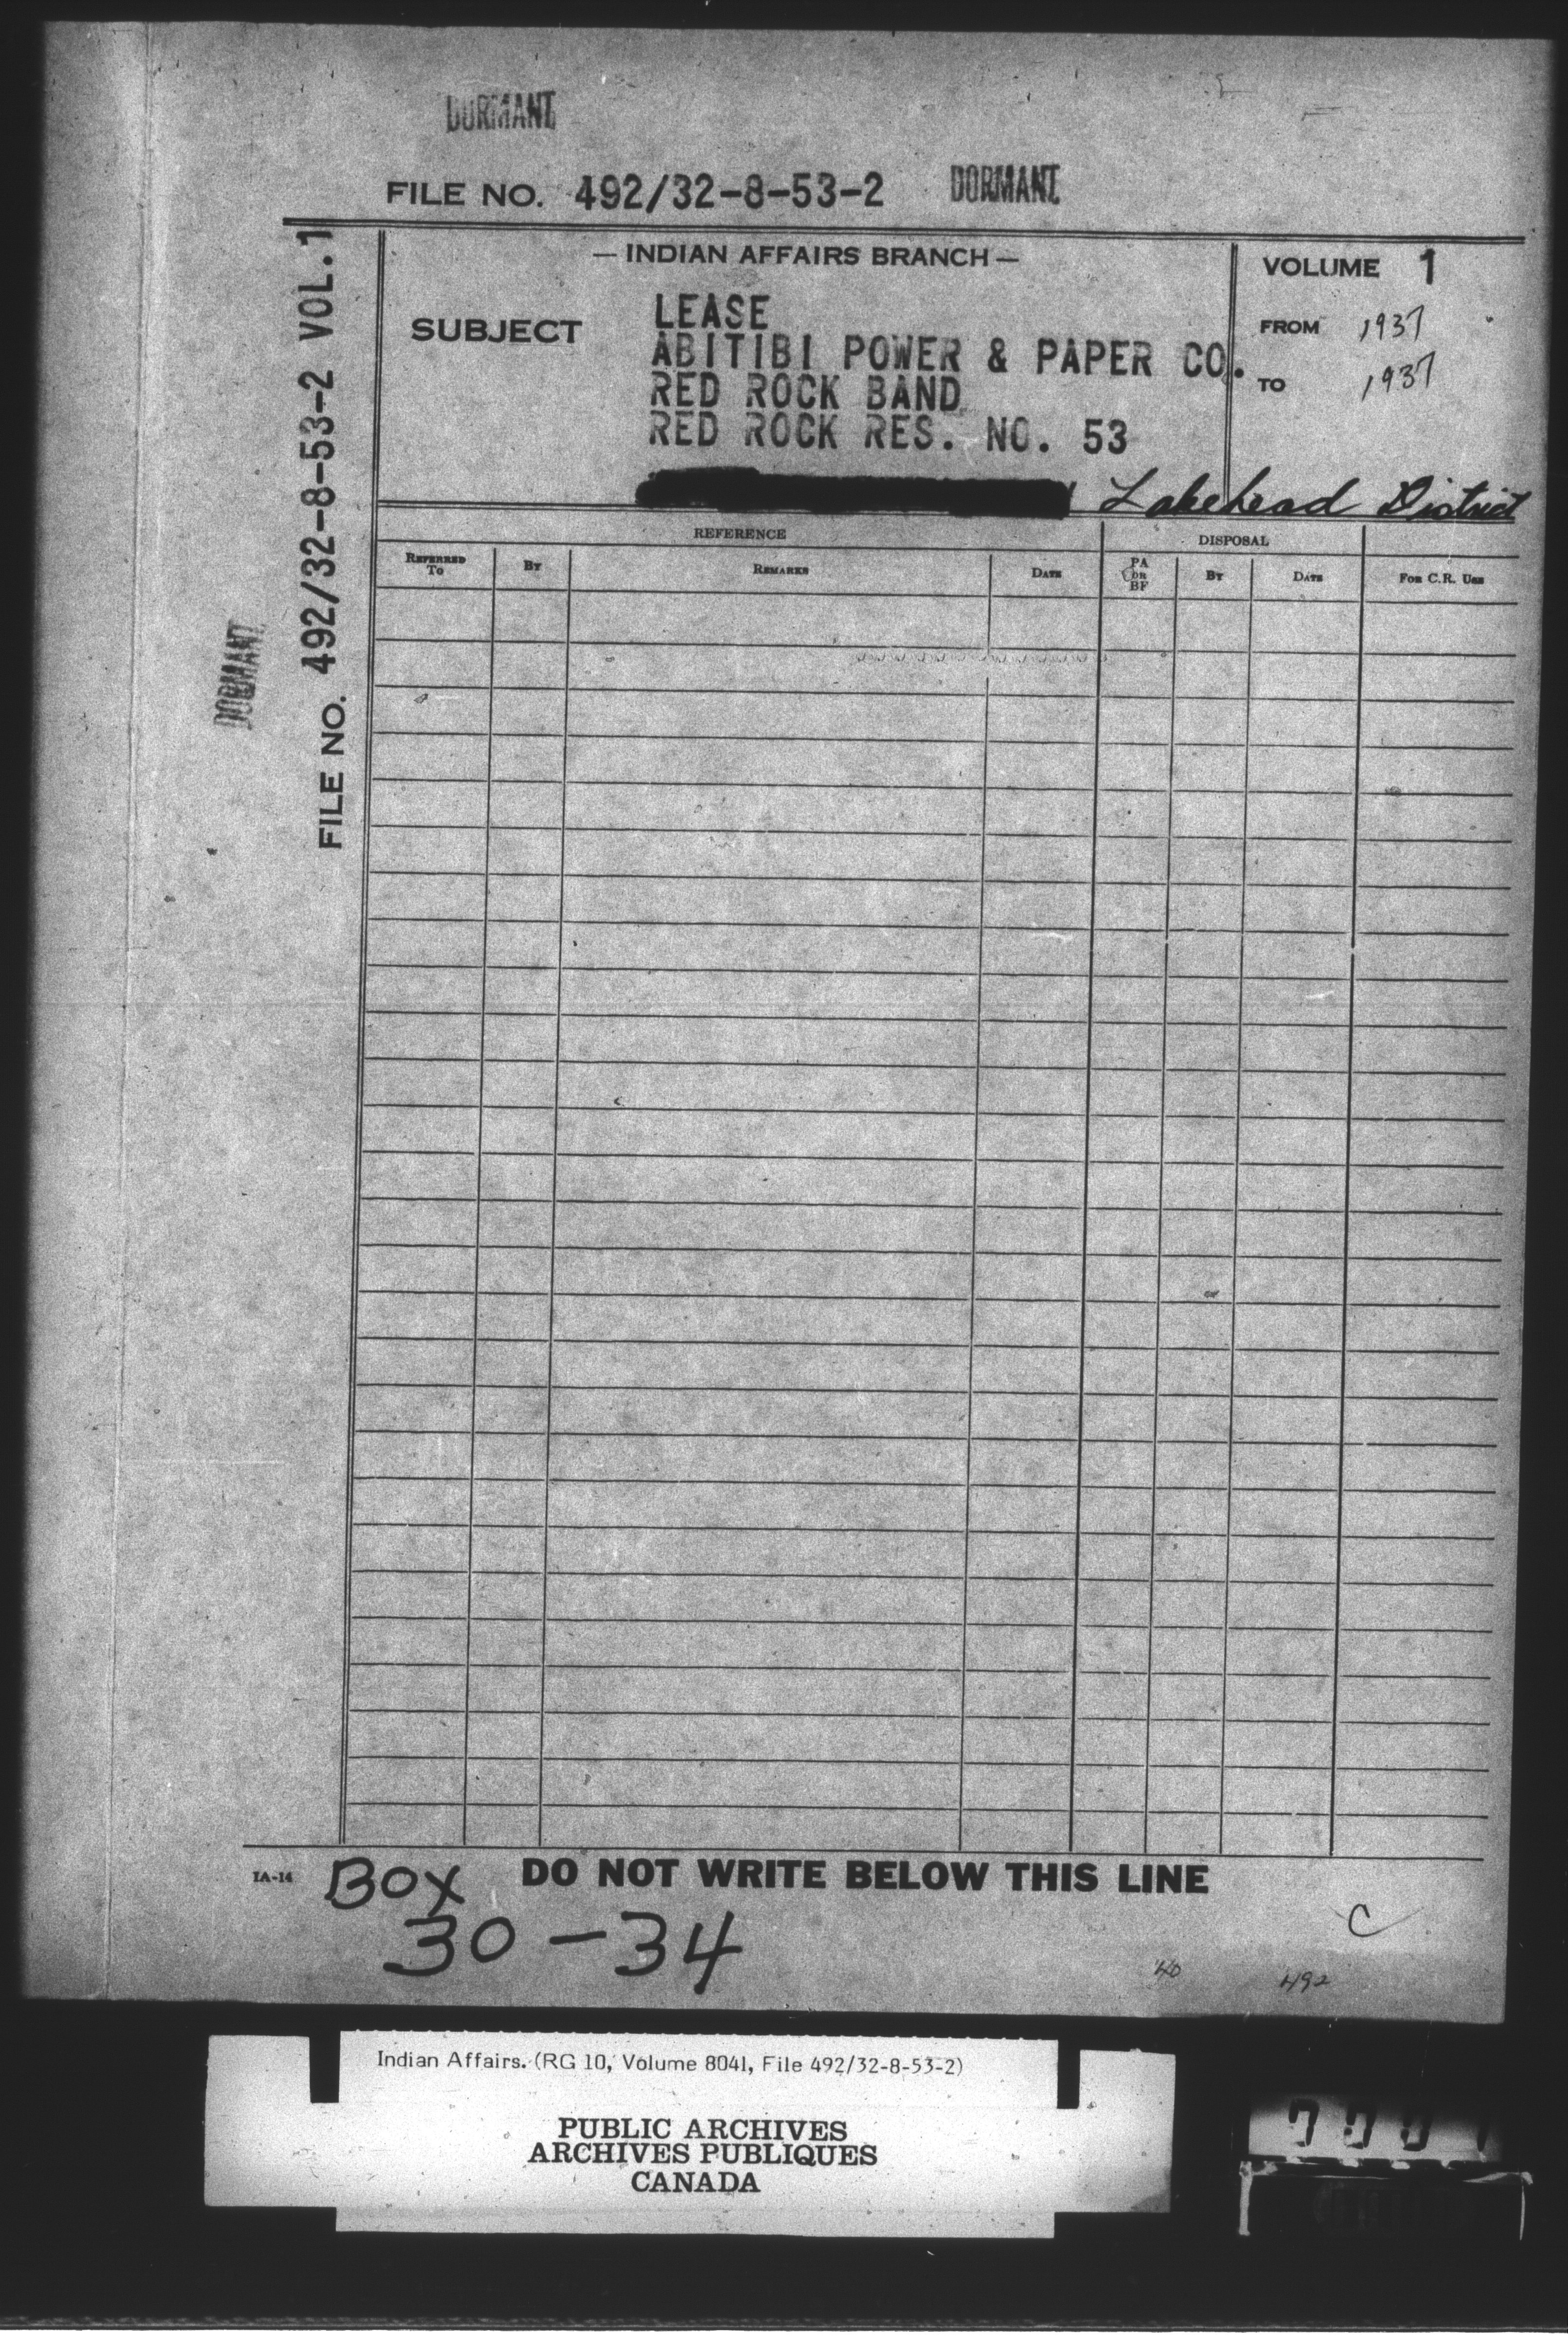 DORMANT
FILE NO. 492/32-8-53-2 DORMANT
— INDIAN AFFAIRS BRANCH —
SUBJECT
LEASE
ABITIBI POWER & PAPER CO.
RED ROCK BAND
RED ROCK RES. NO. 53
Lakehead District
VOLUME 1
FROM 1937
TO 1937
FILE NO. 492/32-8-53-2 VOL.1
DORMANT
REFERENCE
DISPOSAL
REFERRED TO
BY
REMARKS
DATE
PA OR BF
BY
DATE
FOR C.R. USE
IA-14
DO NOT WRITE BELOW THIS LINE
Box
30-34
C
40
492
Indian Affairs. (RG 10, Volume 8041, File 492/32-8-53-2)
PUBLIC ARCHIVES
ARCHIVES PUBLIQUES
CANADA